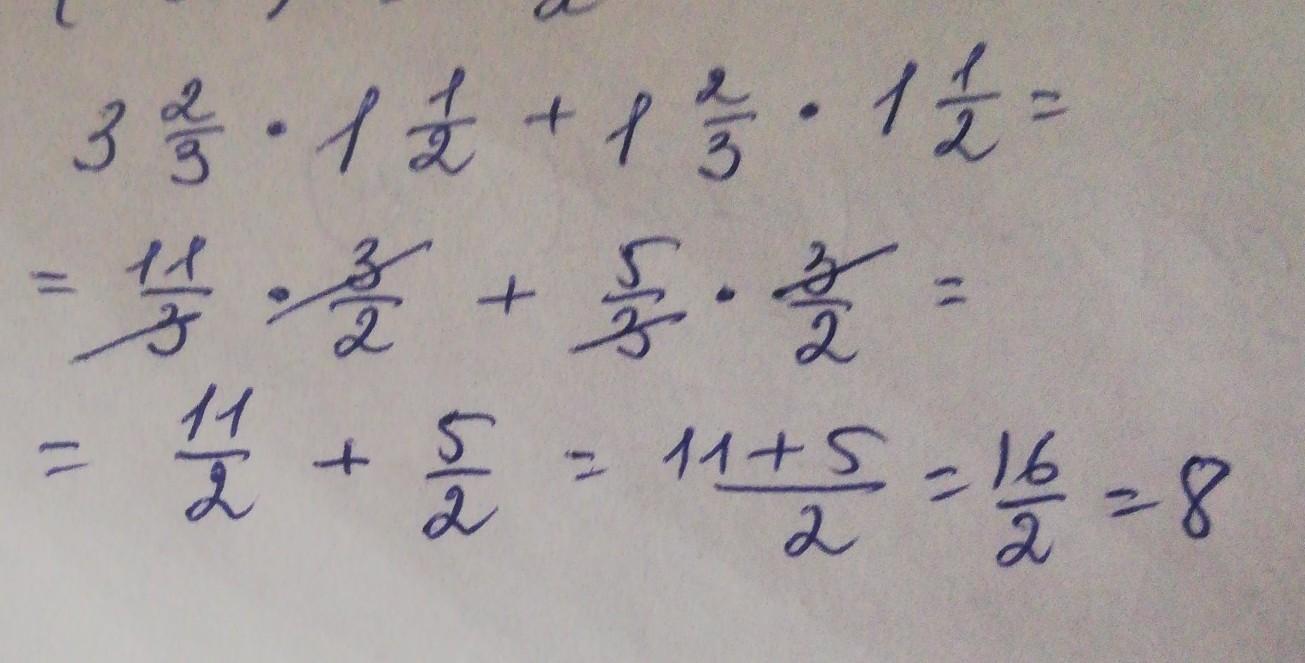 3 2/3 · 1 1/2 + 1 2/3 · 1 1/2 =
= 11/3 · 3/2 + 5/3 · 3/2 =
= 11/2 + 5/2 = (11+5)/2 = 16/2 = 8